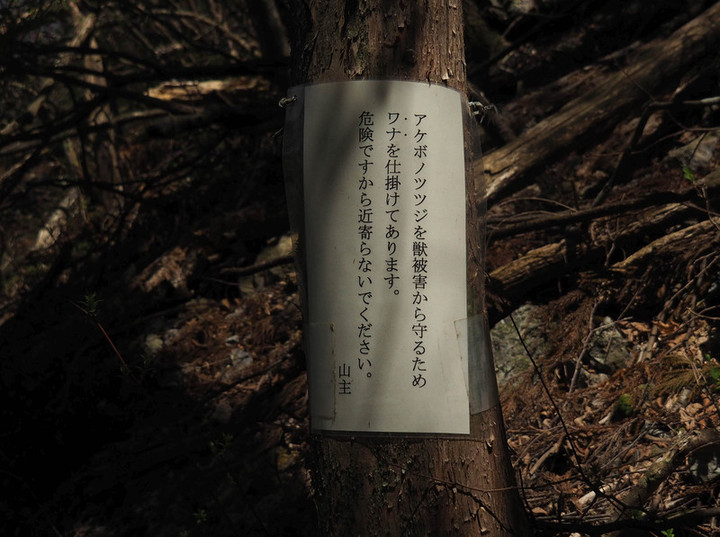 アケボノツツジを獣被害から守るため
ワナを仕掛けてあります。
危険ですから近寄らないでください。
山主